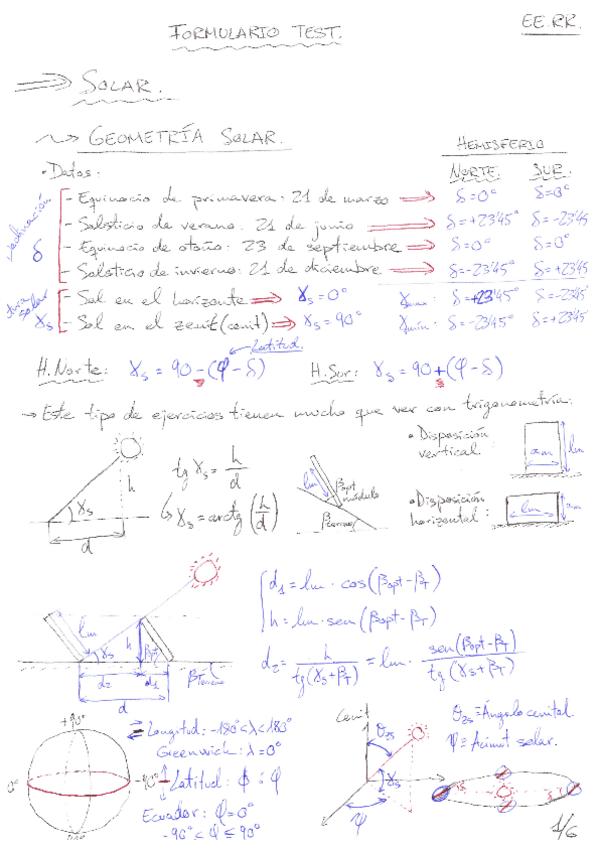 FORMULARIO TEST.
EE.RR.
SOLAR.
GEOMETRÍA SOLAR.
HEMISFERIO
• Datos:
NORTE. SUR.
Declinación δ
- Equinocio de primavera: 21 de marzo ⇒ δ=0° δ=0°
- Solsticio de verano: 21 de junio ⇒ δ=+23'45° δ=-23'45
- Equinocio de otoño: 23 de septiembre ⇒ δ=0° δ=0°
- Solsticio de invierno: 21 de diciembre ⇒ δ=-23'45° δ=+23'45
solar γs
- Sol en el horizonte ⇒ γs=0° δ=+23'45° δ=-23'45
- Sol en el zenit (cenit) ⇒ γs=90° δ=-23'45° δ=+23'45
Latitud.
H.Norte: γs = 90 - (φ - δ) H.Sur: γs = 90 + (φ - δ)
→ Este tipo de ejercicios tienen mucho que ver con trigonometría:
• Disposición vertical:
am
lm
h
γs
d
tg γs = h/d
γs = arctg (h/d)
lm
βopt módulo
βterreno
• Disposición horizontal:
lm
am
d1 = lm · cos(βopt - βT)
h = lm · sen(βopt - βT)
d2 = h/tg(γs + βT) = lm · sen(βopt - βT)/tg(γs + βT)
lm
γs
h
βopt
d2
d1
d
βTerreno
+90°
0°
Longitud: -180°<λ<180°
Greenwick: λ=0°
Latitud: ϕ ó φ
Ecuador: φ=0°
-90° ≤ φ ≤ 90°
Cenit
θzs
γs
ψ
θzs = Ángulo cenital.
ψ ≡ Acimut solar.
1/6